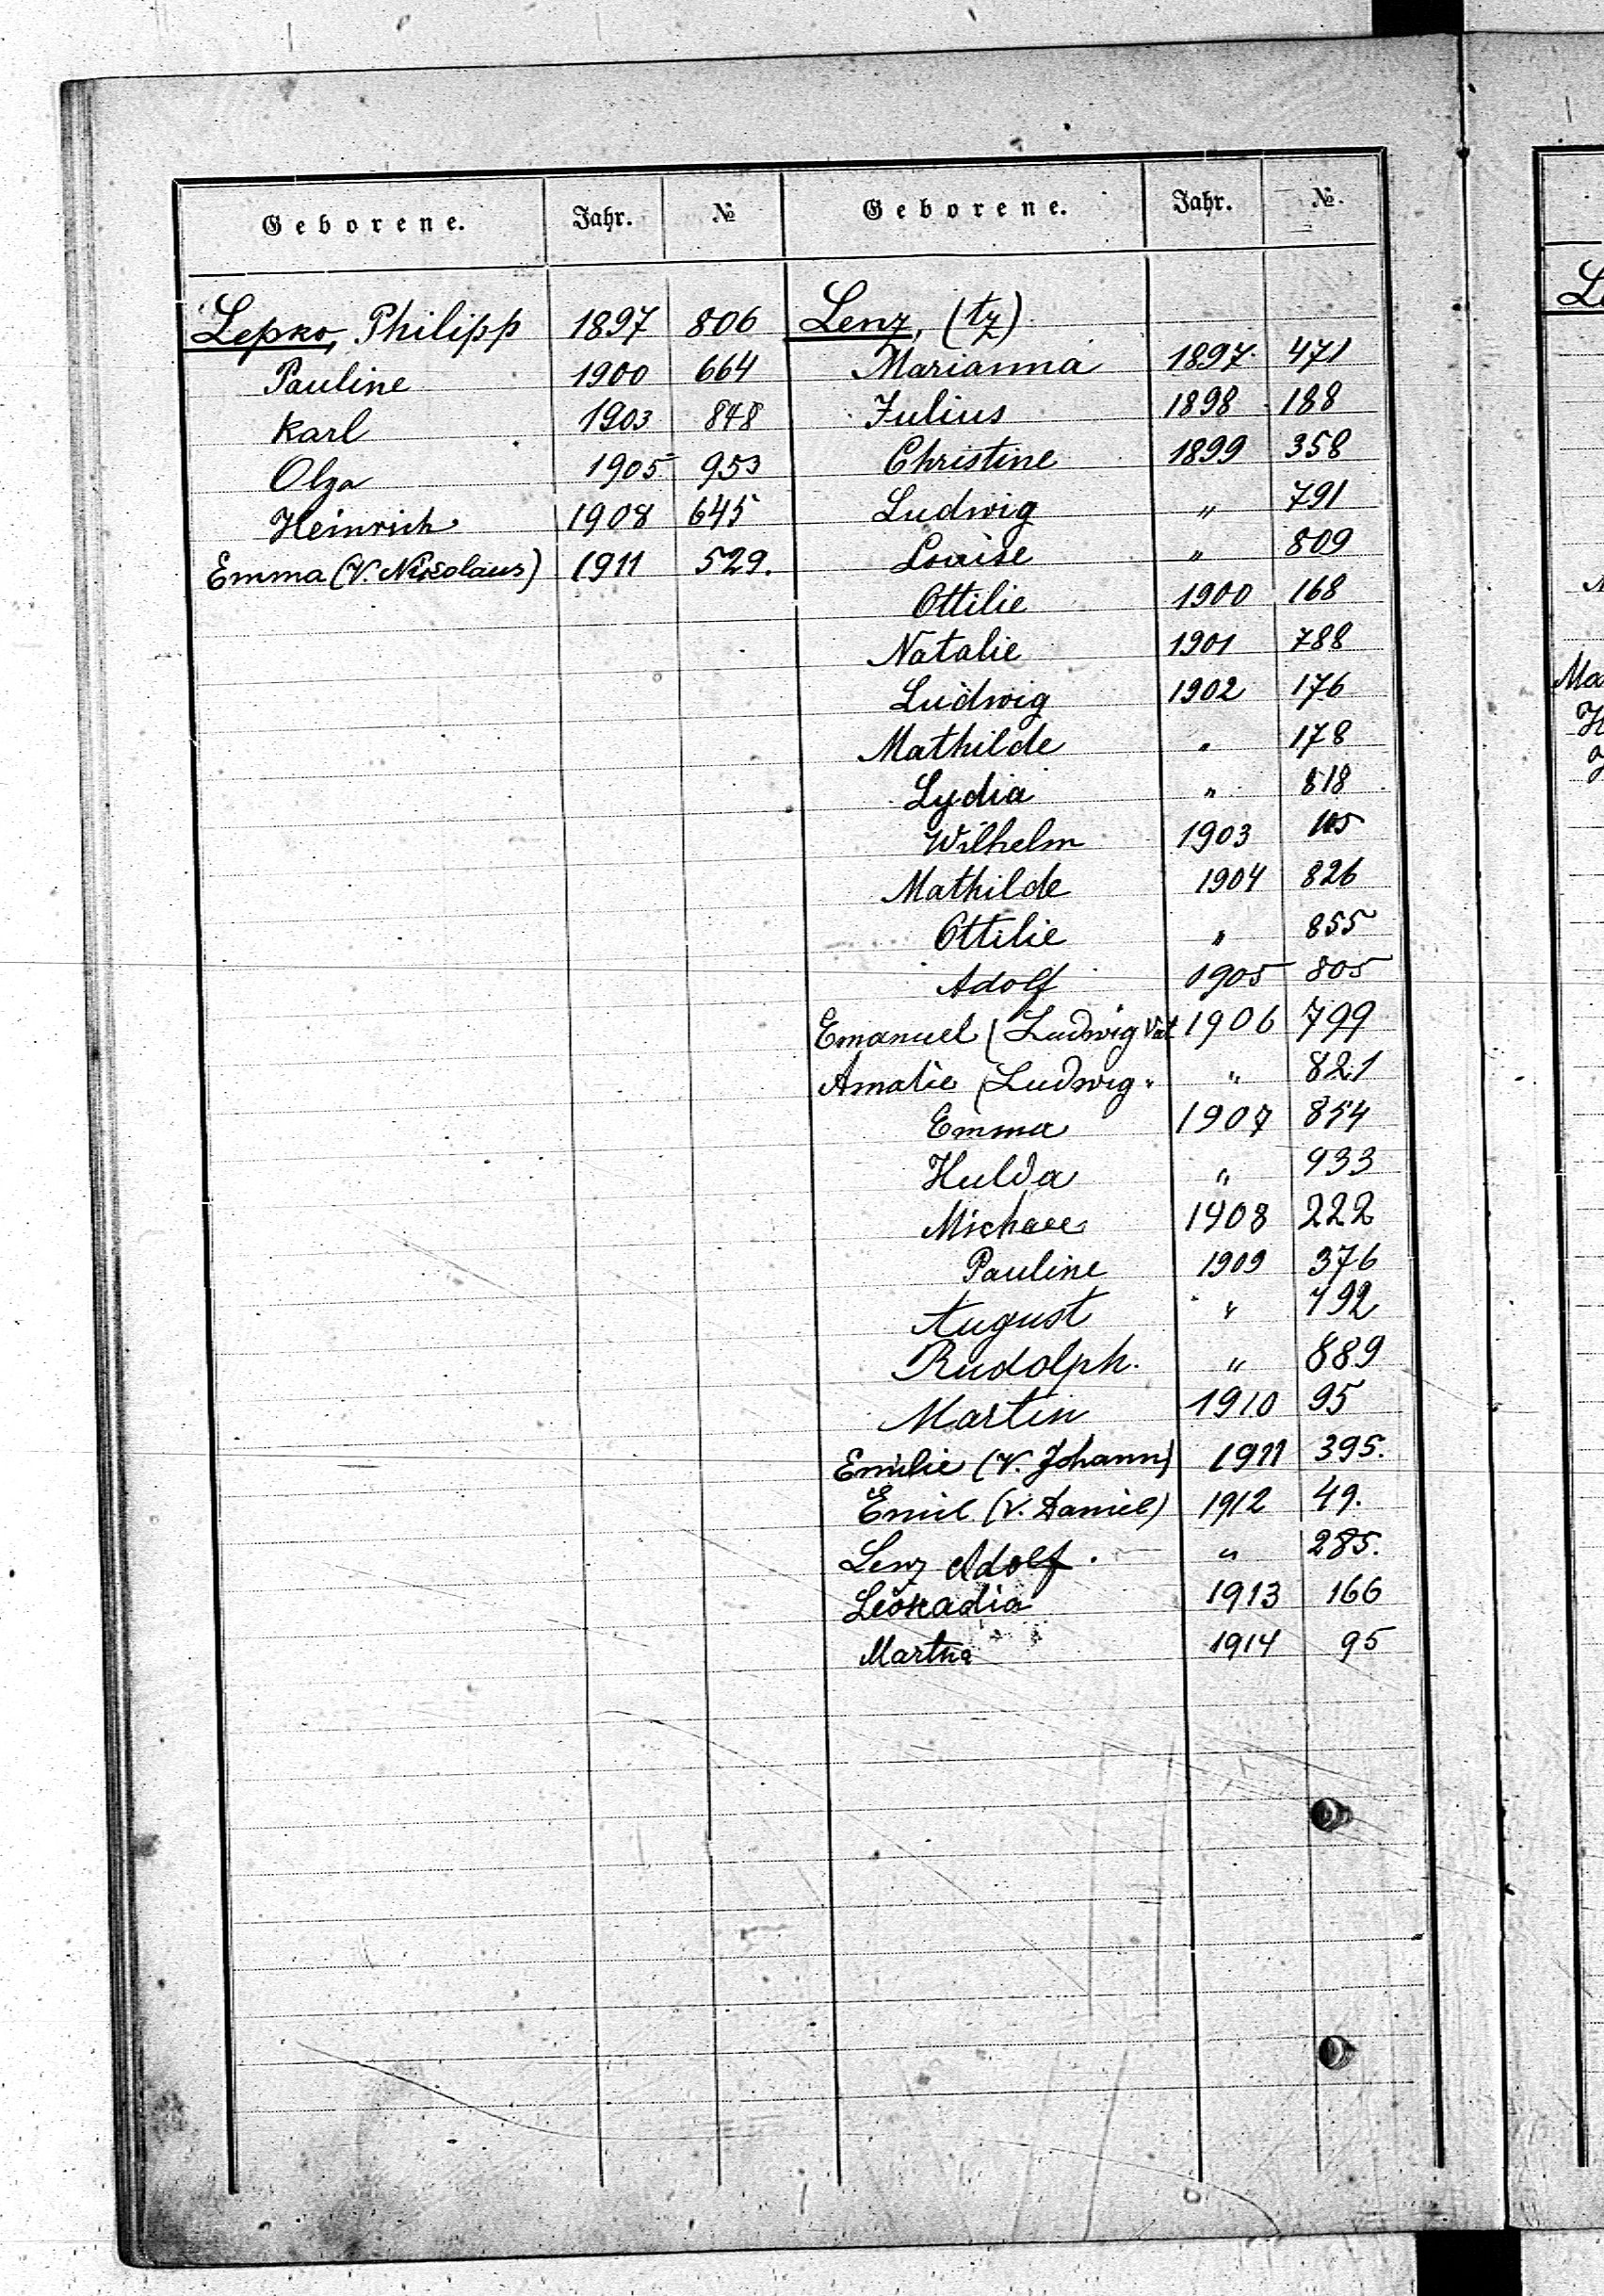 Geborene. Jahr. №
Lepko, Philipp 1897 806
Pauline 1900 664
Karl 1903 848
Olga 1905 953
Heinrich 1908 645
Emma (V. Nikolaus) 1911 529.
Geborene. Jahr. №.
Lenz, (tz)
Marianna 1897 471
Julius 1898 188
Christine 1899 358
Ludwig " 791
Louise " 809
Ottilie 1900 168
Natalie 1901 788
Ludwig 1902 176
Mathilde " 178
Lydia " 818
Wilhelm 1903 105
Mathilde 1904 826
Ottilie " 855
Adolf 1905 805
Emanuel (Ludwig Vat 1906 799
Amalie (Ludwig " " 821
Emma 1907 854
Hulda " 933
Michael 1908 222
Pauline 1909 376
August " 792
Rudolph. " 889
Martin 1910 95
Emilie (V. Johann) 1911 395.
Emil (V. Daniel) 1912 49.
Lenz Adolf. " 285.
Leokadia 1913 166
Martha 1914 95